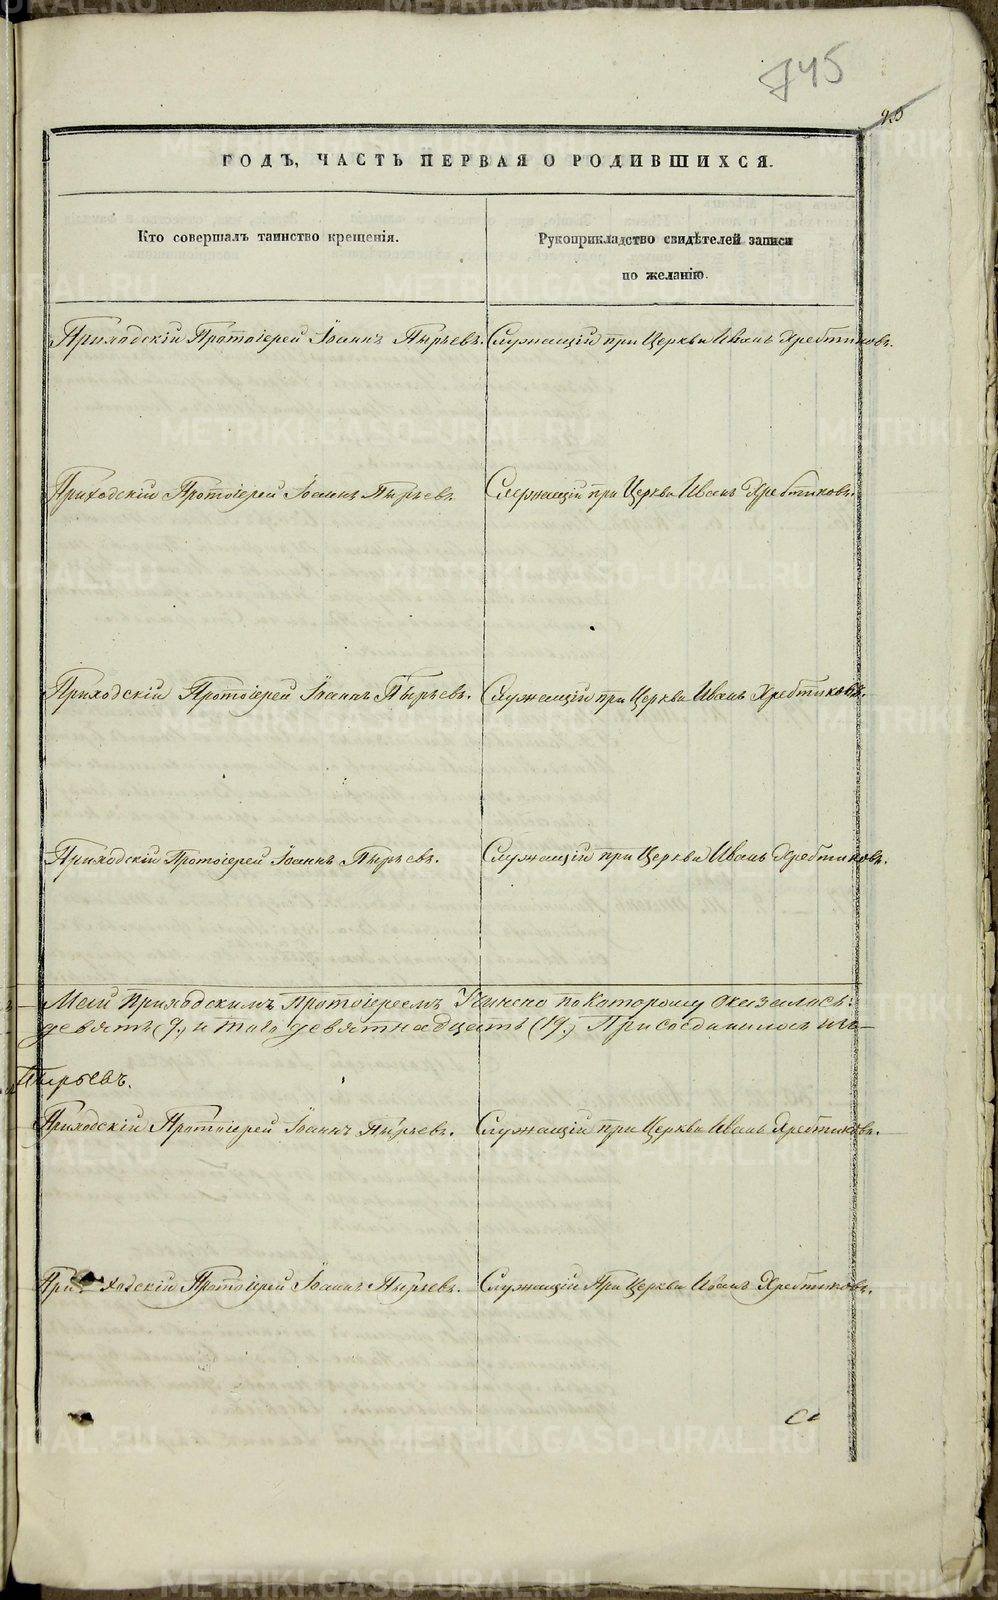 745
25
ГОДЪ, ЧАСТЬ ПЕРВАЯ О РОДИВШИХСЯ.
Кто совершалъ таинство крещенія.
Рукоприкладство свидѣтелей записи
по желанію.
Приходскій Протоіерей Іоаннъ Пырьевъ. Служащій при Церкви Иванъ Хребтиковъ.
Приходскій Протоіерей Іоаннъ Пырьевъ. Служащій при Церкви Иванъ Хребтиковъ.
Приходскій Протоіерей Іоаннъ Пырьевъ. Служащій при Церкви Иванъ Хребтиковъ.
Приходскій Протоіерей Іоаннъ Пырьевъ. Служащій при Церкви Иванъ Хребтиковъ.
Приходскимъ Протоіереемъ по которому оказалось:
девять (9,) итого девятнадцать (19.)
Пырьевъ.
Приходскій Протоіерей Іоаннъ Пырьевъ. Служащій при Церкви Иванъ Хребтиковъ.
Приходскій Протоіерей Іоаннъ Пырьевъ. Служащій При Церкви Иванъ Хребтиковъ.
METRIKI.GASO-URAL.RU